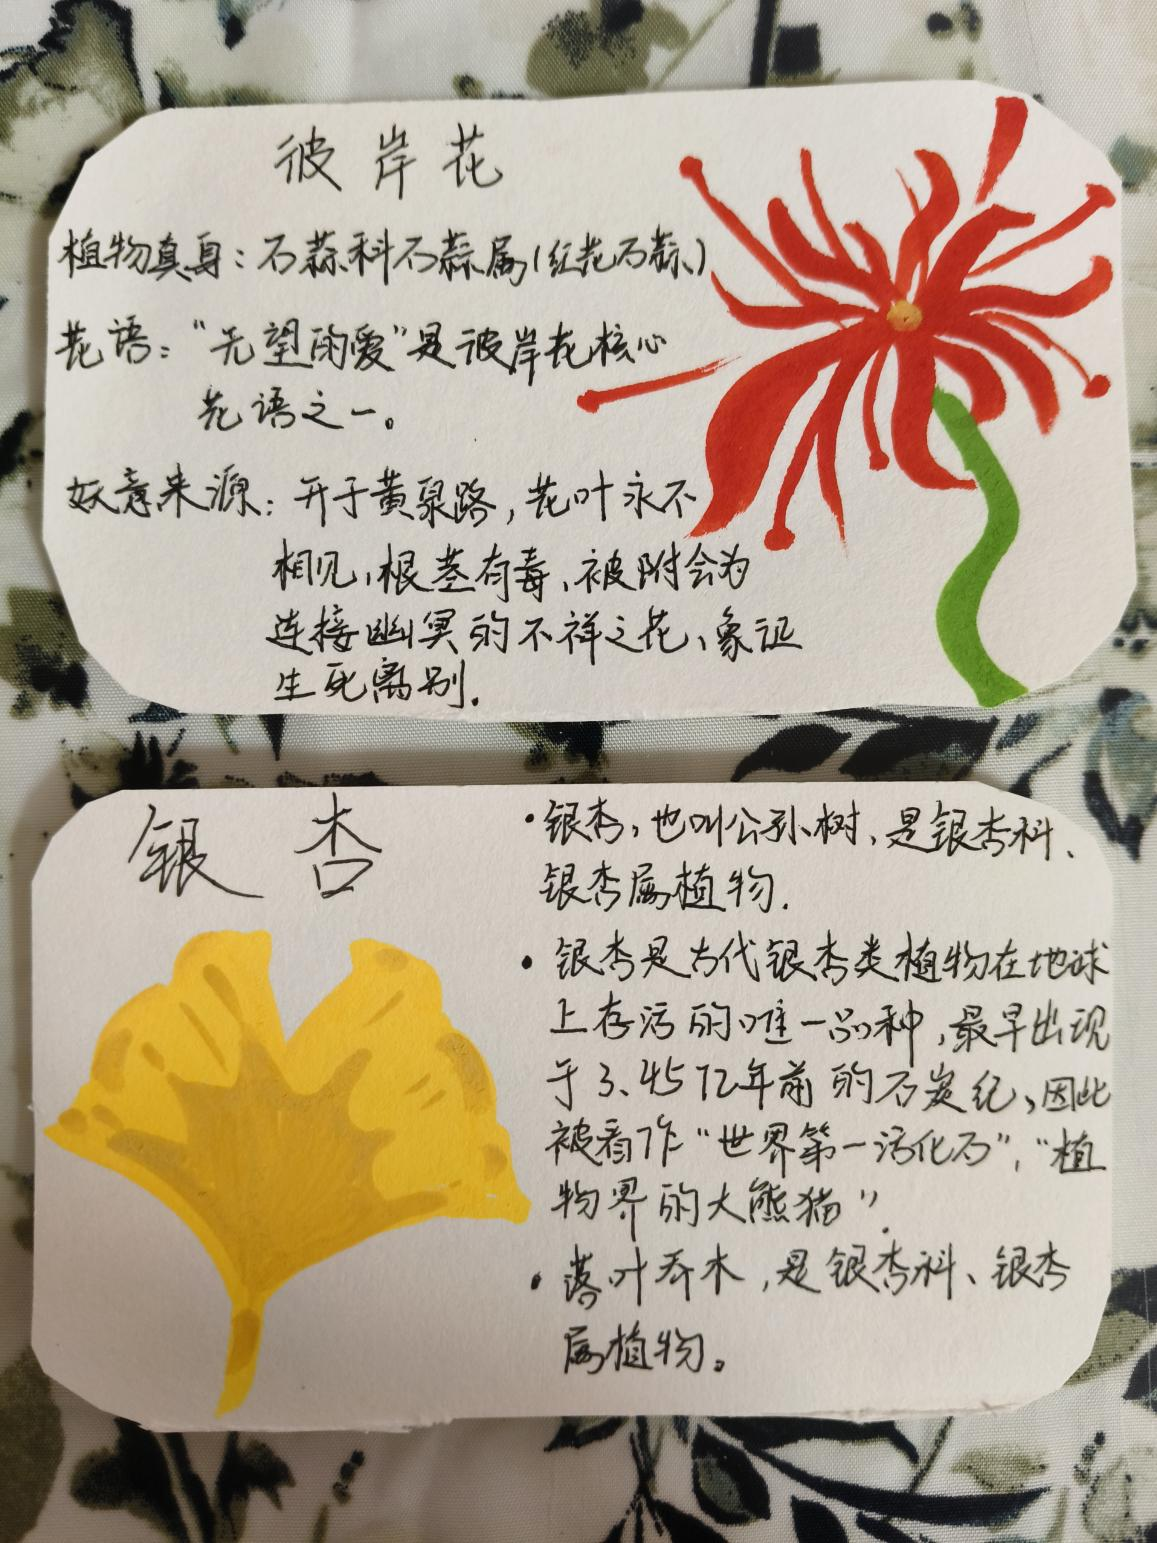 彼岸花
植物真身：石蒜科石蒜属(红花石蒜)
花语："无望的爱"是彼岸花核心
花语之一。
妖意来源：开于黄泉路，花叶永不
相见，根茎有毒、被附会为
连接幽冥的不祥之花、象证
生死离别.
银杏
•银杏，也叫公孙树、是银杏科、
银杏属植物.
•银杏是古代银杏类植物在地球
上存活的唯一品种，最早出现
于3.45亿年前的石炭纪，因此
被看作"世界第一活化石"，"植
物界的大熊猫".
•落叶乔木，是银杏科、银杏
属植物。